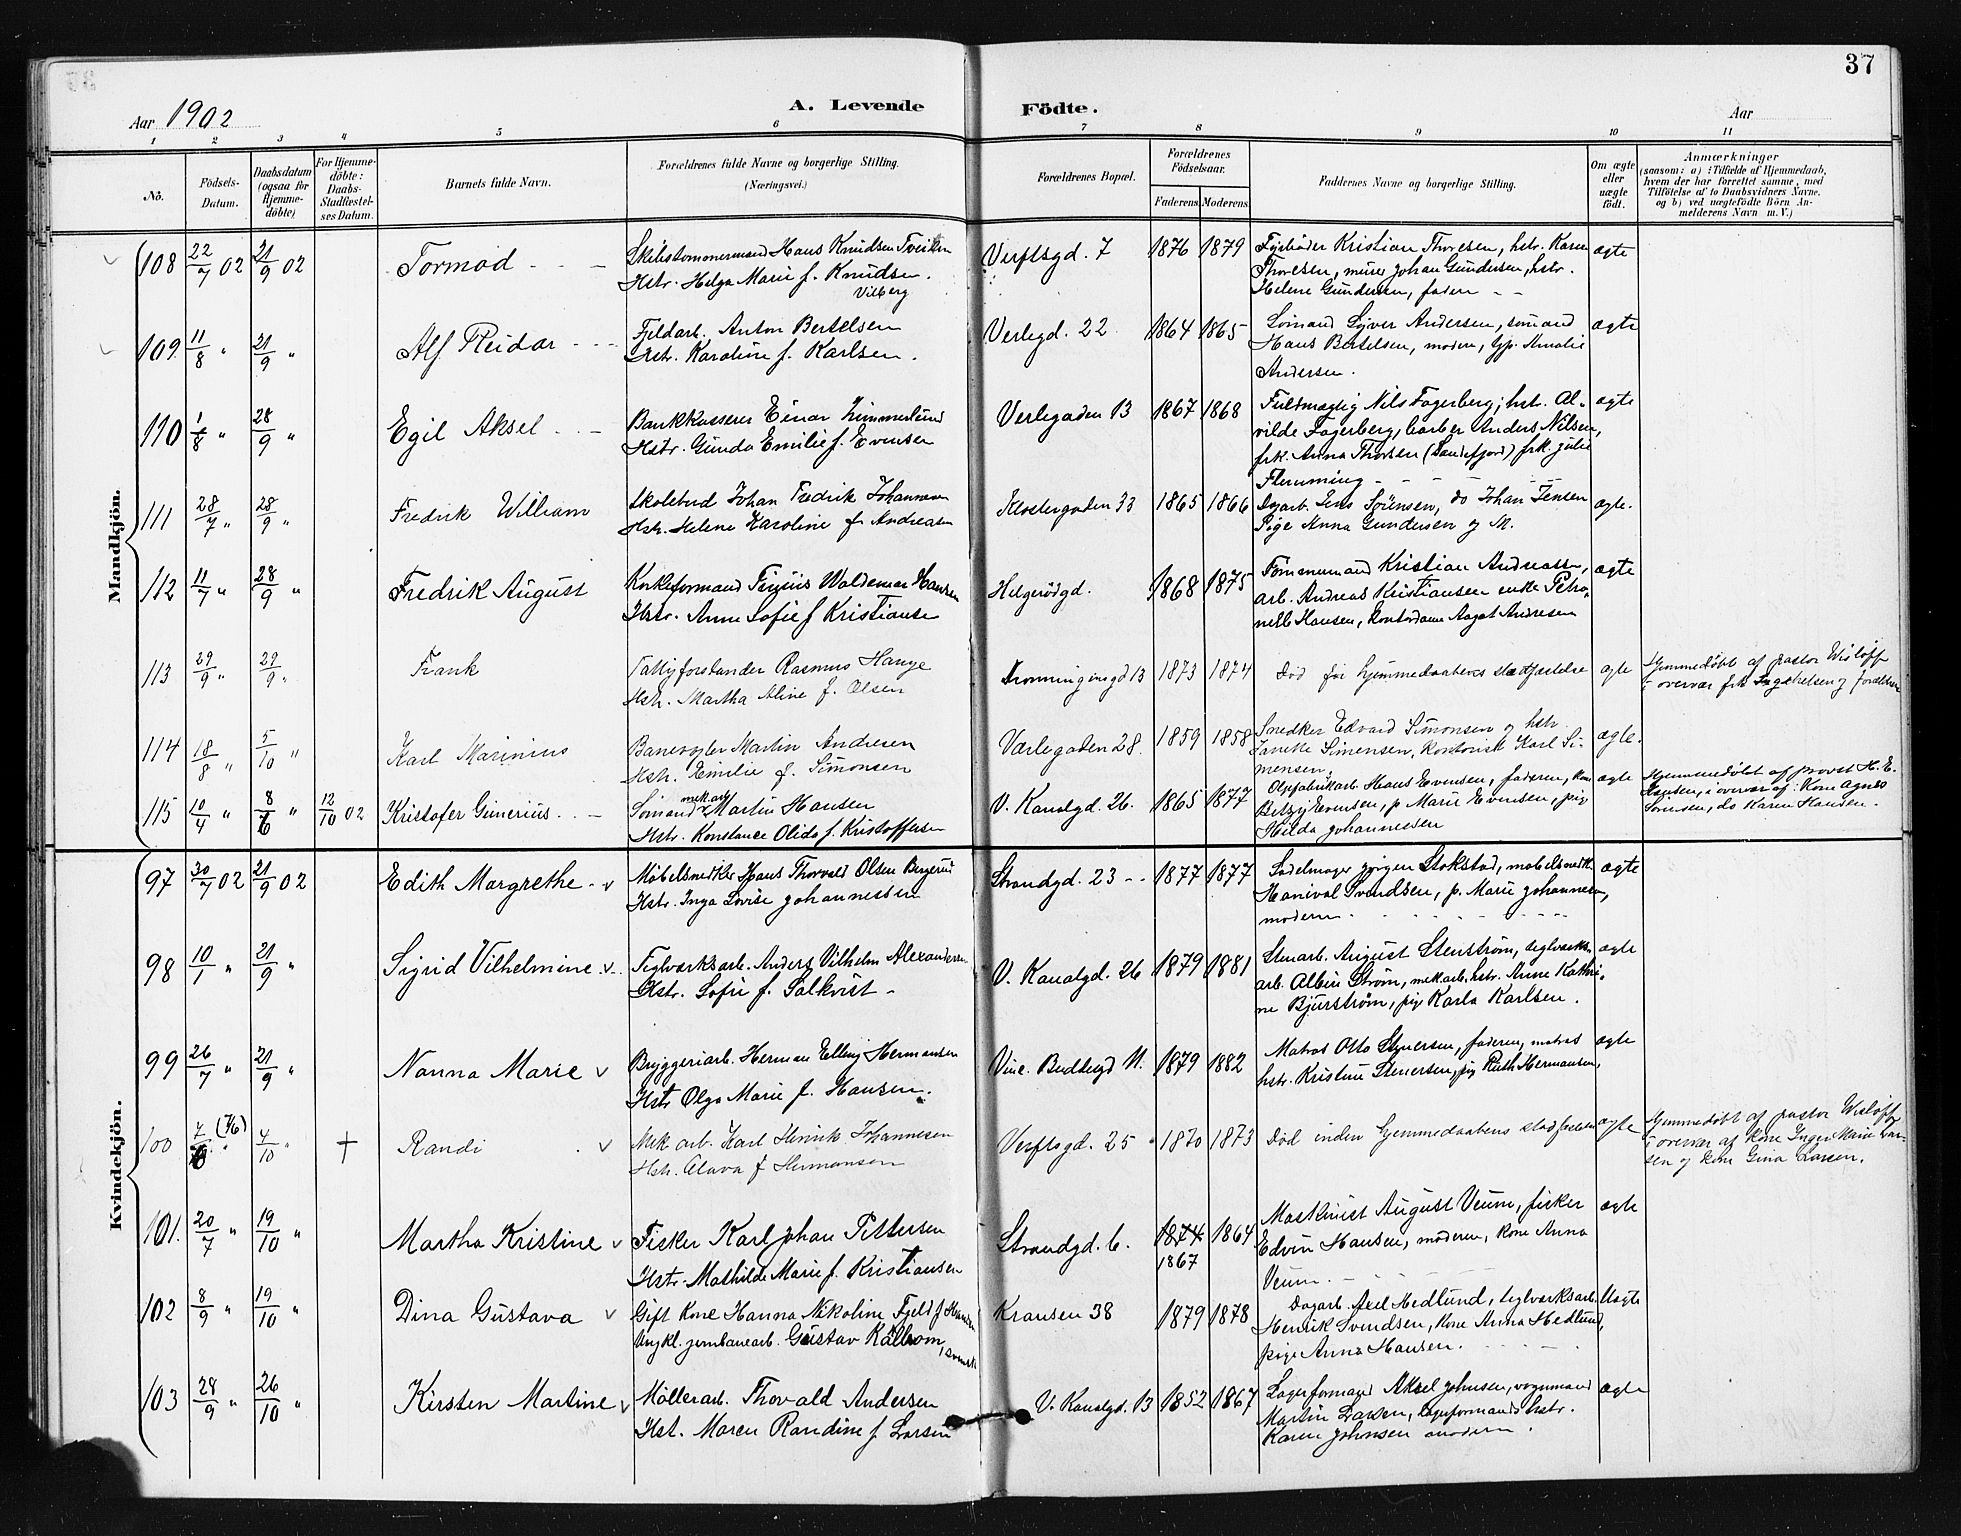 37
Aar 1902
A. Levende Födte.
Aar
1 2 3 4 5 6 7 8 9 10 11
No.
Födsels-Datum.
Daabsdatum (ogsaa for Hjemme-döbte)
For Hjemme-döbte: Daabs-Stadfæstel-ses Datum.
Barnets fulde Navn.
Forældrenes fulde Navne og borgerlige Stilling. (Næringsvei.)
Forældrenes Bopæl.
Forældrenes Födselsaar.
Faderens Moderens
Faddernes Navne og borgerlige Stilling.
Om ægte eller uægte födt.
Anmærkninger
(saasom: a) i Tilfælde af Hjemmedaab,
hvem der har forrettet samme, med
Tilföielse af to Daabsvidners Navne,
og b) ved uægtefödte Börn An-
melderens Navn m. V.)
Mandkjön.
108 22/7 02 21/9 02 Tormod Skibstømmermand Hans Knudsen Tveiten Verftsgd. 7 1876 1879 Fyrbøder Kristian Thoresen, hstr. Karen ægte
Hstr. Helga Marie f. Knudsen Thoresen, murer Johan Gundersen, hstr.
Vilberg Helene Gundersen, faderen
109 11/8 " 21/9 " Alf Reidar Fjeldarb. Anton Bertelsen Verlegd. 22 1864 1865 Sømand Sjver Andersen, sømand ægte
Hstr. Karoline f. Karlsen. Hans Bertelsen, moderen, Amalie
Andersen.
110 1/8 " 28/9 " Egil Aksel Bankkasserer Einar Simmerlund Verlegaden 13 1867 1868 Fuldmægtig Nils Fagerberg, hstr. Al- ægte
Hstr. Gunda Emilie f. Evensen vilde Fagerberg, barber Anders Nilsen,
frk. Anna Thorsen (Sandefjord) frk. Julie
Flemming
111 28/7 " 28/9 " Fredrik William Skolebud Johan Fredrik Johannesen Klostergaden 33 1865 1866 Dagarb. Jens Sörensen, do Johan Jensen ægte.
Hstr. Helene Karoline f. Andreasen Pige Anna Gundersen og M.
112 11/7 " 28/9 " Fredrik August Korkeformand Sigurs Waldemar Hansen Helgerødgd. 1868 1875 Tømmermand Kristian Andreassen, ægte
Hstr. Anne Sofie f Kristiansen arb. Andreas Kristiansen enke Petro-
nelle Hansen, Kontordame Aagot Andresen
113 29/9 " 29/9 " Frank Tallyforstander Rasmus Hauge Dronningensgd 13 1873 1874 Död før hjemmedaabens stadfæstelse ægte Hjemmedöbt af pastor Wisløff
Hstr. Martha Aline f. Olsen i overvær frk og forældrene
114 18/8 " 5/10 " Karl Marinius Banevogter Martin Andresen Værlegaden 28. 1859 1858 Snedker Edvard Simonsen og hstr. ægte.
Hstr. Emilie f. Simonsen Janette Simensen, kontorist Karl Si-
mensen
115 10/4 " 8/6 " 12/10 02 Kristofer Gunerius mek.arb Sömand Martin Hansen V. Kanalgd. 26. 1865 1877 Oljefabrikarb. Hans Evensen, faderen, kone ægte Hjemmedöbt af provst H. E.
Hstr. Konstance Olida f. Kristoffersen Betzy Evensen, p Marie Evensen, pige Hansen, i overvær af: Kone Agnes
Hilda Johannessen Sörensen, do Karen Hansen.
Kvindekjön.
97 30/7 02 21/9 02 Edith Margrethe v Møbelsnedker Hans Thorvald Olsen Bergerud Strandgd. 23 1877 1877 Sadelmager Jørgen Stokstad, møbelsnedk. ægte
Hstr. Inga Lovise Johannessen Hanival Svendsen, p. Marie Johannesen,
moderen
98 10/1 " 21/9 " Sigrid Vilhelmine v Teglværksarb. Anders Vilhelm Alexandersen V. Kanalgd. 26 1879 1881 Stenarb. August Stenstrøm, teglværks- ægte
Hstr. Sofie f. Salkvist arb. Albin Strøm, mek.arb. hstr. Anne Kathri-
ne Bjurstrøm, pige Karla Karlsen.
99 26/7 " 21/9 " Nanna Marie v Bryggeriarb. Herman Elling Hermansen Vinc. Budtsgd 11. 1879 1882 Matros Otto Stenersen, faderen, matros ægte
Hstr Olga Marie f. Hansen. hstr. Kristine Stenersen, pige Ruth Hermansen,
100 7/8 (7/6) " 4/10 " † Randi v Mek arb. Karl Henrik Johannesen Verftsgd. 25 1870 1873 Död inden hjemmedaabens stadfæstelse ægte Hjemmedöbt af pastor Wisløff
Hstr. Alava f Hermansen i overvær af Kone Inger Marie Lar-
sen og kone Gina Larsen.
101. 20/7 " 19/10 " Martha Kristine v Fisker Karl Johan Pettersen Strandgd. 6. 1874 1867 1864 Maskinist August Veum, fisker ægte
Hstr. Mathilde Marie f. Kristiansen Edvin Hansen, moderen, kone Anna
Veum.
102 8/9 " 19/10 " Dina Gustava v Gift Kone Hanna Nikoline Fjeld f Hansen Kransen 38 1879 1878 Dagarb. Axel Hedlund, teglværksarb. Uægte
Ungkl. jernbanearb. Gustav Källrom, svensk Henrik Svendsen, kone Anna Hedlund,
pige Anna Hansen.
103 28/9 " 26/10 " Kirsten Martine v Møllerarb. Thorvald Andersen V. Kanalgd. 13 1852 1867 Lagerformand Aksel Johnsen, vognmand ægte
Hst. Maren Randine f Larsen Martin Larsen, lagerformands hstr.
Karen Johnsen moderen.